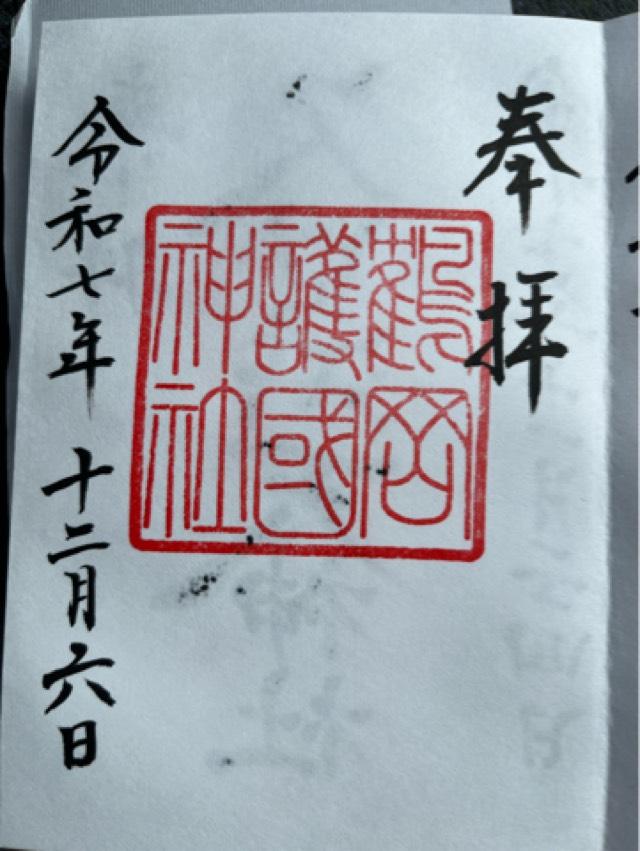 奉拝
鶴岡
護國
神社
令和七年 十二月六日